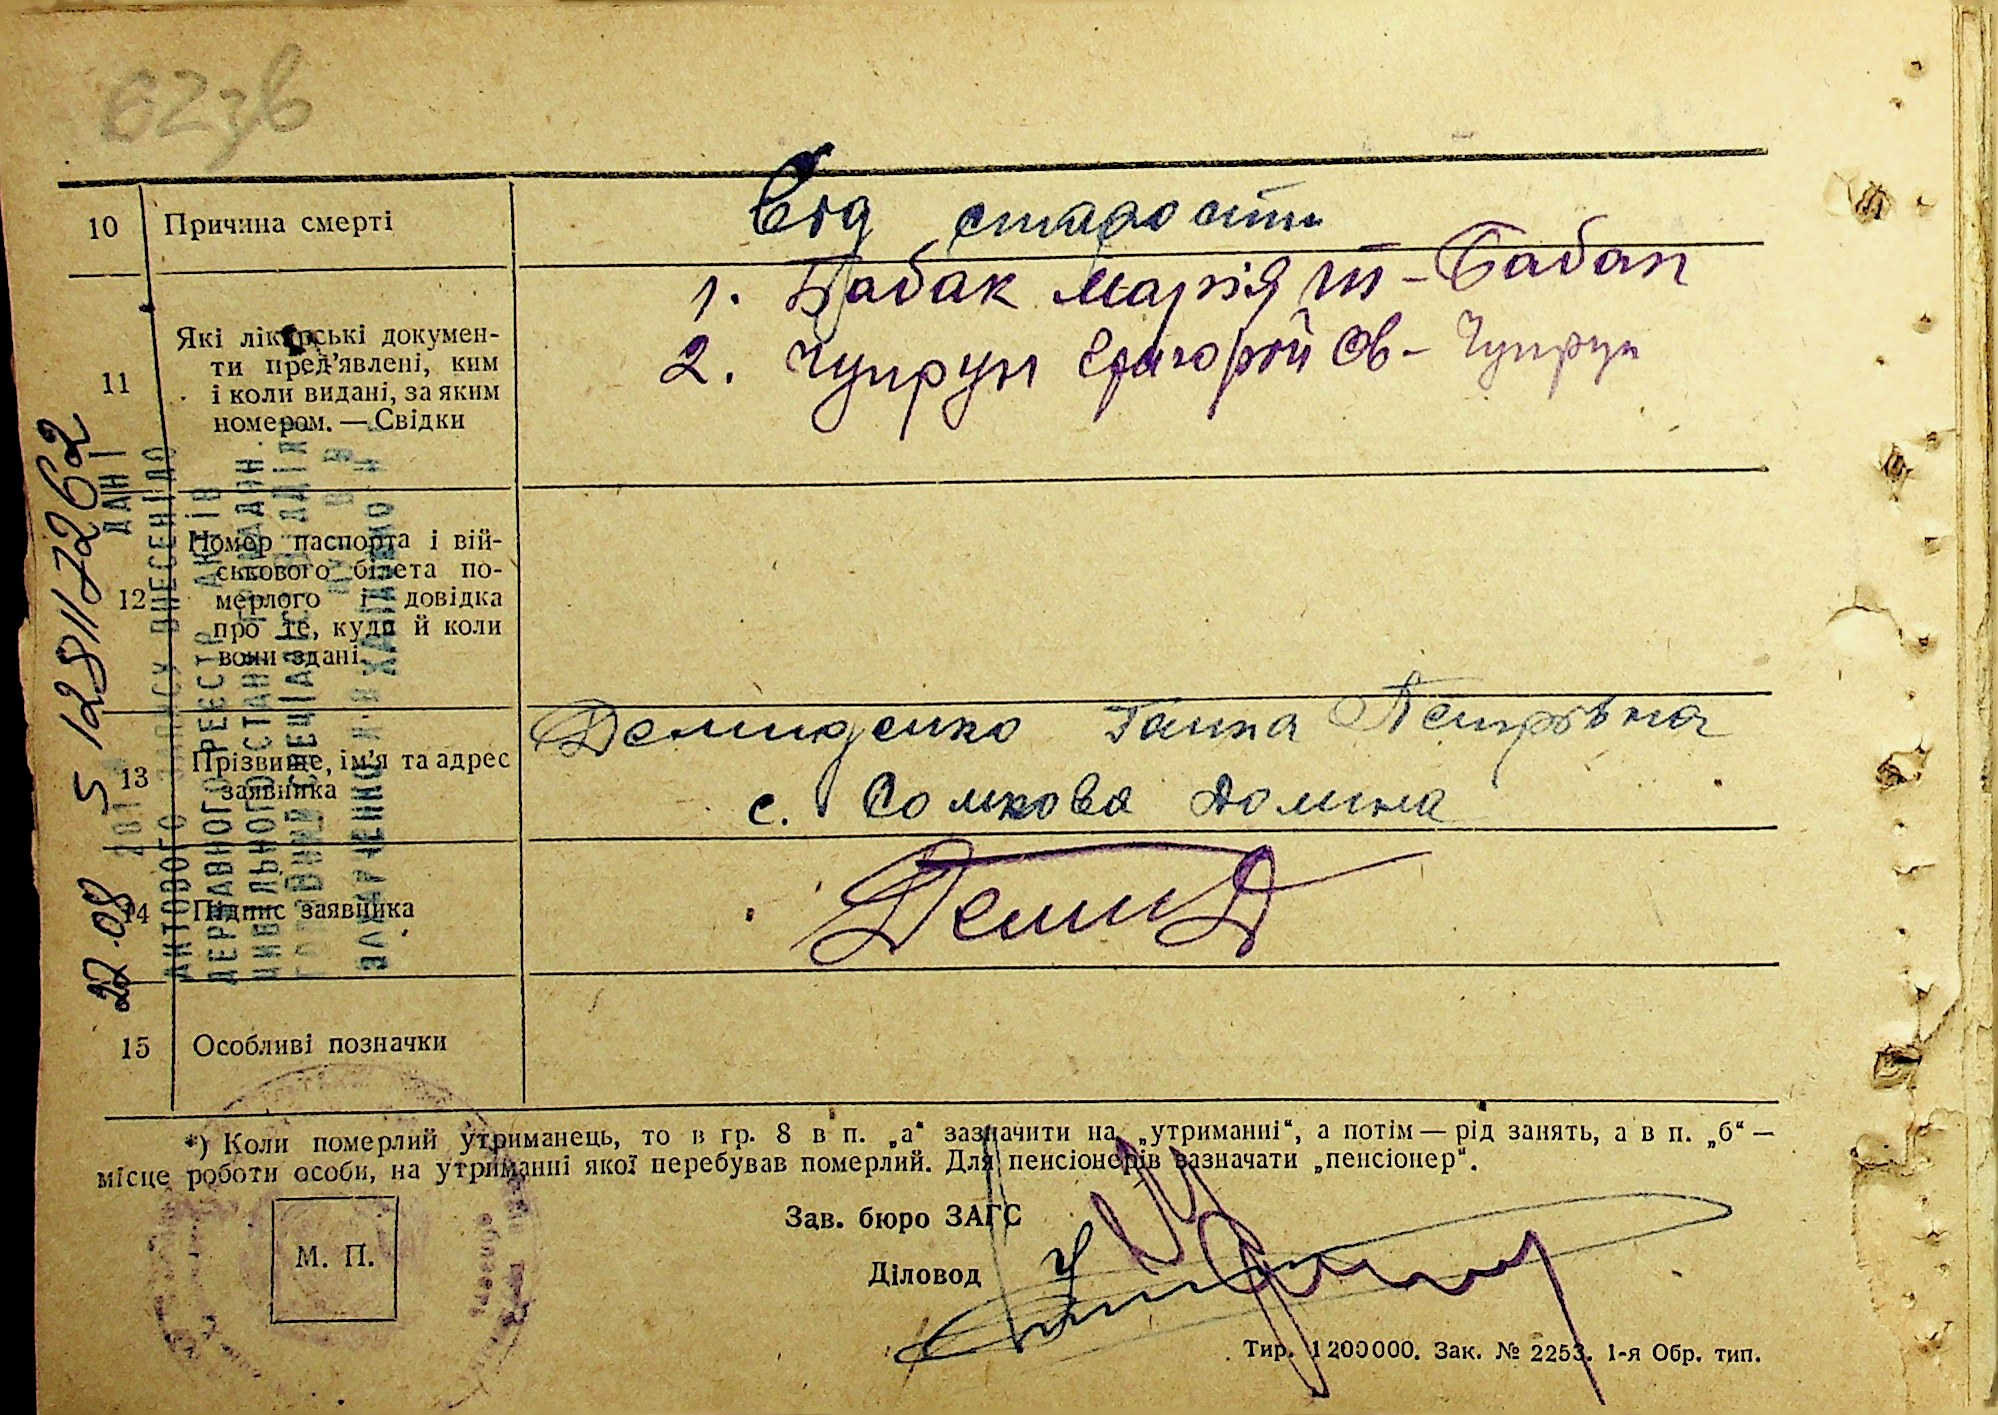 62зв
10 Причина смерті Від старости
11 Які лікарські докумен-
ти пред’явлені, ким
і коли видані, за яким
номером. — Свідки
1. Бабак Марія Т - Бабак
2. Чупрун Григорій Ов - Чупрун
12 Номер паспорта і вій-
ськового білета по-
мерлого і довідка
про те, куди й коли
вони здані.
13 Прізвище, ім’я та адрес
заявника
Демиденко Ганна Петрівна
с. Сомкова Долина
14 Підпис заявника ДемиД
15 Особливі позначки
*) Коли померлий утриманець, то в гр. 8 в п. „а“ зазначити на „утриманні“, а потім — рід занять, а в п. „б“ —
місце роботи особи, на утриманні якої перебував померлий. Для пенсіонерів зазначати „пенсіонер“.
М. П.
Зав. бюро ЗАГС
Діловод
Тир. 1200000. Зак. № 2253. 1-я Обр. тип.
ДАНІ
АКТОВОГО ЗАПИСУ ВНЕСЕНІ ДО
ДЕРЖАВНОГО РЕЄСТР АКТІВ
ЦИВІЛЬНОГО СТАНУ ГРОМАДЯН.
ГОЛОВНИЙ СПЕЦІАЛІСТ ВІДДІЛ
22.08 5 128117262
область